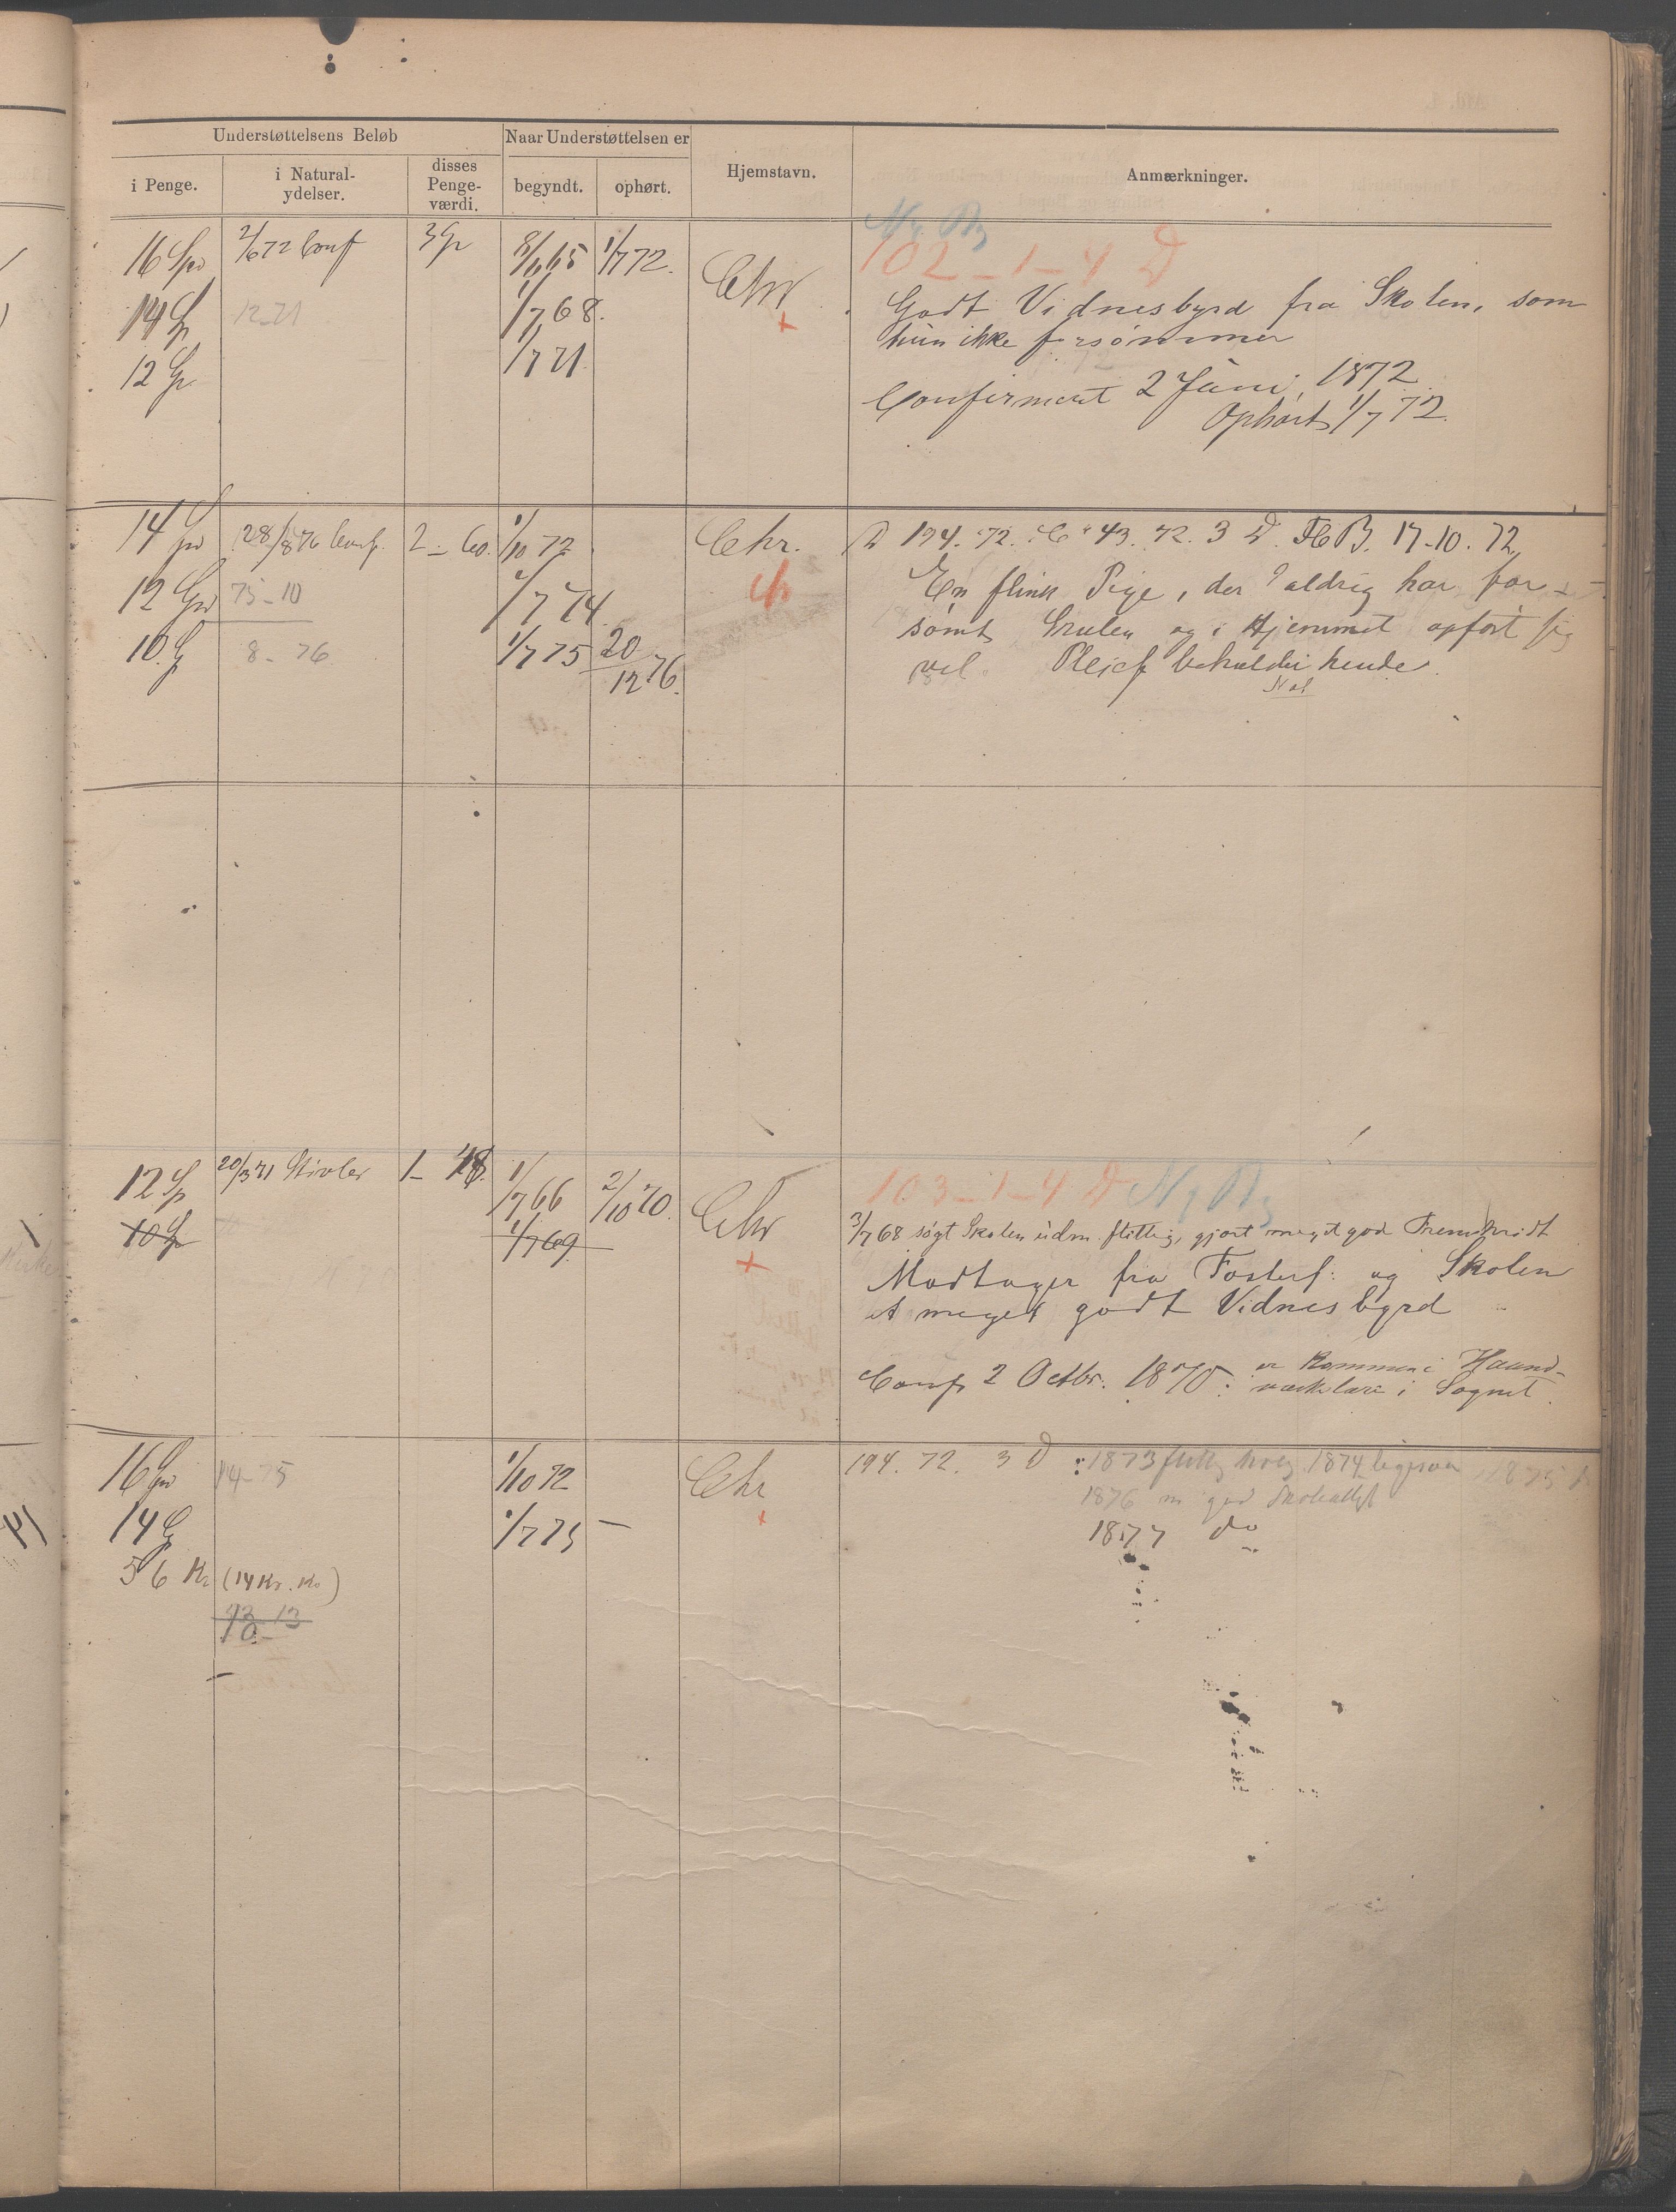 Understøttelsens Beløb
Naar Understøttelsen er
i Penge.
i Natural-
ydelser.
disses
Penge-
værdi.
begyndt.
ophørt.
Hjemstavn.
Anmærkninger.
16 Spd 2/6 72 Conf 3 Sp 8/6 65 1/7 72. Chr
14 Sp 12-71 1/7 68.
12 Sp 1/7 71
Ny Pr
102-1-4 D
Godt Vidnesbyrd fra Skolen, som
hun ikke forsømmer
Confirmert 2 Juni 1872
Ophørt 1/7 72.
14 Spd 28/8 76 Conf. 2 - 60. 1/10 72 Chr. 194. 72. 43. 72. 3 D. 17-10. 72
12 Spd 75-10 1/7 74
10 Sp 8-76 1/7 75 20/12 76.
En flink Pige, der aldrig har for-
sømt Skolen og i Hjemmet opført sig
vel. Pleief beholder hende
12 Sp 20/3 71 Støvler 1- 48. 1/7 66 2/10 70. Chr
10 Sp 1/7 69
103-1-4 D Ny Pr
3/7 68 søgt Skolen udm. flittig, gjort meget god Fremskridt
Modtager fra Fosterf: og Skolen
et meget godt Vidnesbyrd
Conf 2 Octbr. 1870: er kommen i Haand-
værklære i Sognet.
16 Spd 14-75 1/10 72 Chr 194. 72. 3 D : 1873 flittig 1874 ligesaa 1875
1876 m god
14 Sp 1/7 75 -
1877 do
56 Kr (14 Kr. Kv)